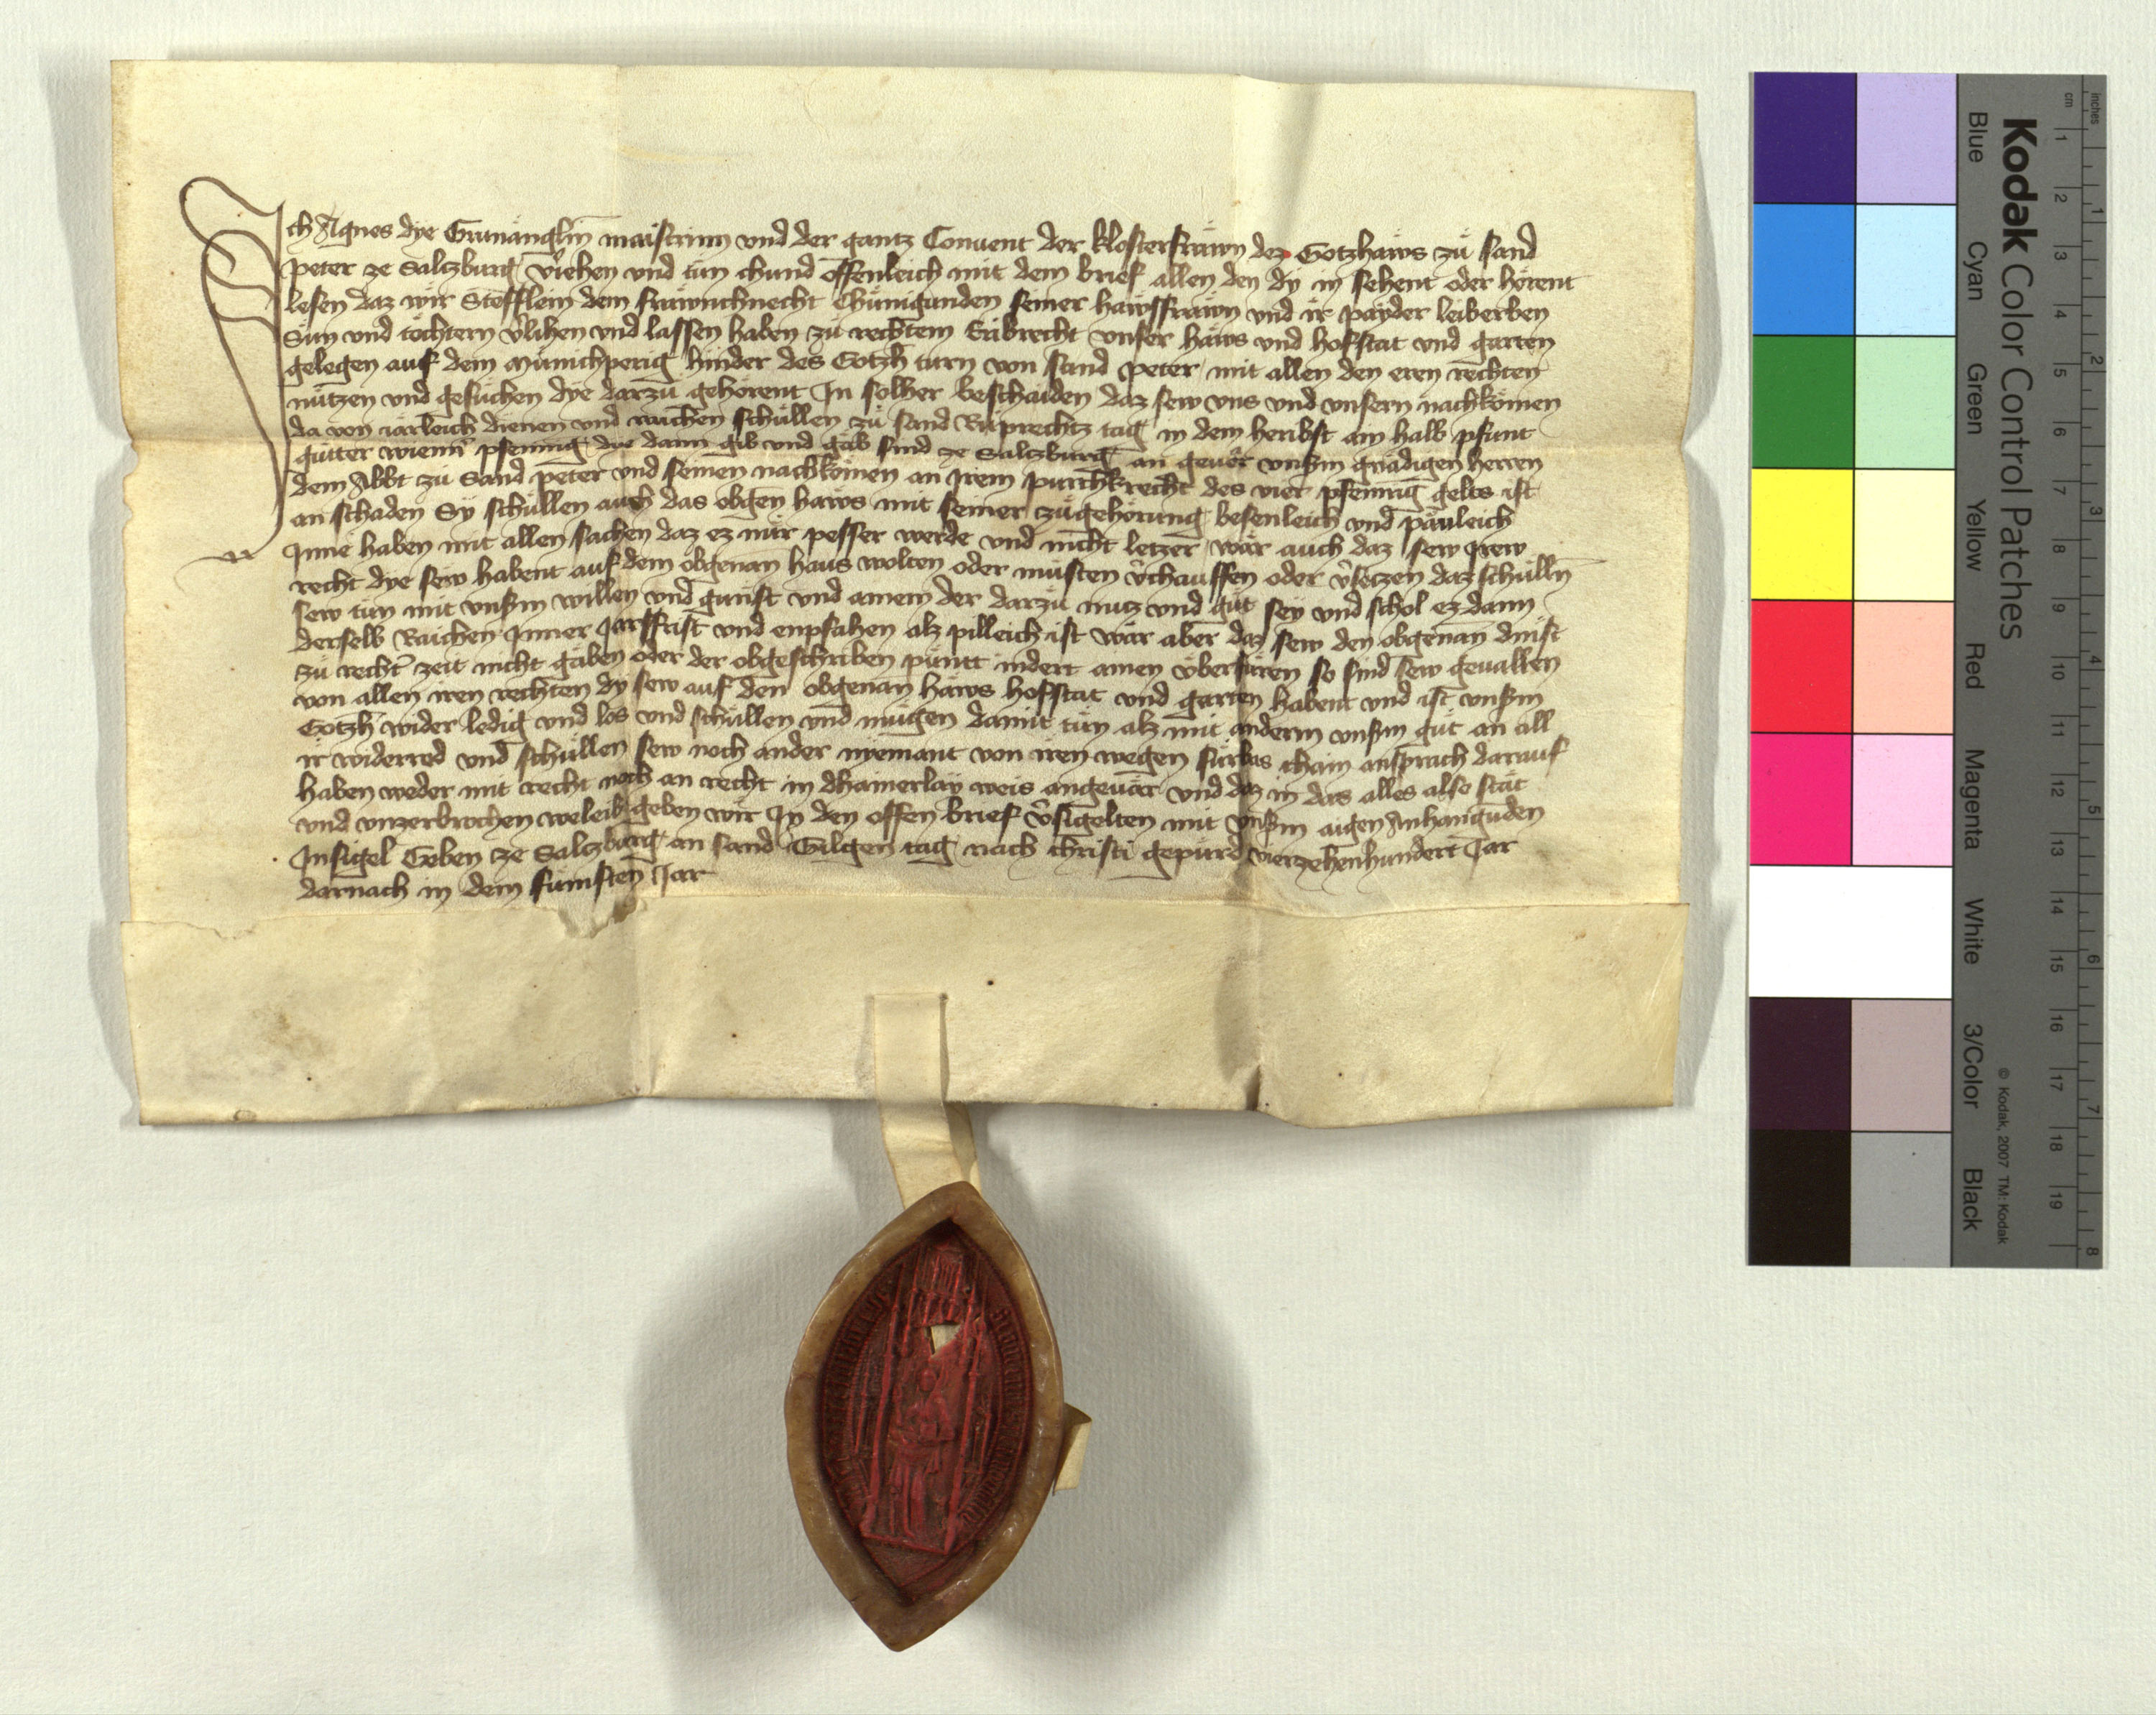 Ich Agnes dye Grunanglin maistrinn vnd der gantz Conuent der klosterfräwn dez Gotzhaws zu sand
peter ze Salczburg v̄iehen vnd tün chund offenleich mit dem brief allen den dy in sehent oder hörent
lesen daz wir Stefflein dem fräwnchnecht Chünigunden seiner hawsfräwn vnd ir payder leiberben
Sün vnd töchtern v̄lihen vnd lassen haben zu rechtem Eribrecht vnser haws vnd hofstat vnd garten
gelegen auf dem Münichperig hinder des Gotzh turn von sand peter mit allen den eren rechten
nützen vnd gesüchen dye darzü gehörent In solher beschaiden daz sew vns vnd vnsern nachkömen
da von iärleich dienen vnd raichen schüllen zu sand Rüprechtz tag in dem heribst ain halb pfunt
güter wienn̄ pfennig dye dann gib vnd gäb sind ze Salczburg an geuer vnsm̄ gnädigen herren
dem Abbt zu Sand peter vnd seinen nachkömen an irem purchkrecht des vier pfennig gelts ist
an schaden Sy schüllen auch das obgen haws mit seiner zugehörung besenleich vnd päuleich
Inne haben mit allen sachen daz ez nur pesser werde vnd nicht letzer wär auch daz sew irew
recht dye sew habent auf dem obgenan haus wolten oder müsten v̄chauffen oder v̄seczen daz schülln
sew tün mit vnsm̄ willen vnd gunst vnd ainem der darzu nutz vnd güt sey vnd schol ez dann
derselb Raichen Inner Jarsffrist vnd enpfahen alz pilleich ist wär aber daz sew den obgenan dinst
zu recht̄ zeit nicht gäben oder der obgeschriben püntt indert ainen überfüren so sind sew geuallen
von allen iren rechten dy sew auf den obgenan haws hofstat vnd garten habent vnd ist vnsm̄
Gotzh wider ledig vnd los vnd schüllen vnd mügen damit tün alz mit anderm vnsm̄ güt an all
ir widerred vnd schüllen sew noch ander nyemant von iren wegen fürbas chain ansprach darauf
haben weder mit recht noch an recht in dhainerlay weis angeuär vnd daz in das alles also stät
vnd vnzerbrochen weleib geben wir In den offen brief v̄sigelten mit vnsm̄ aigen Anhangūden
Insigel Geben ze Salczburg an sand Gilgen tag nach christi gepürd vierzehenhundert Jar
darnach in dem fumften Jar
Kodak Color Control Patches
Blue Cyan Green Yellow Red Magenta White 3/Color Black
© Kodak, 2007 TM: Kodak
cm 1 2 3 4 5 6 7 8 9 10 11 12 13 14 15 16 17 18 19
inches 1 2 3 4 5 6 7 8